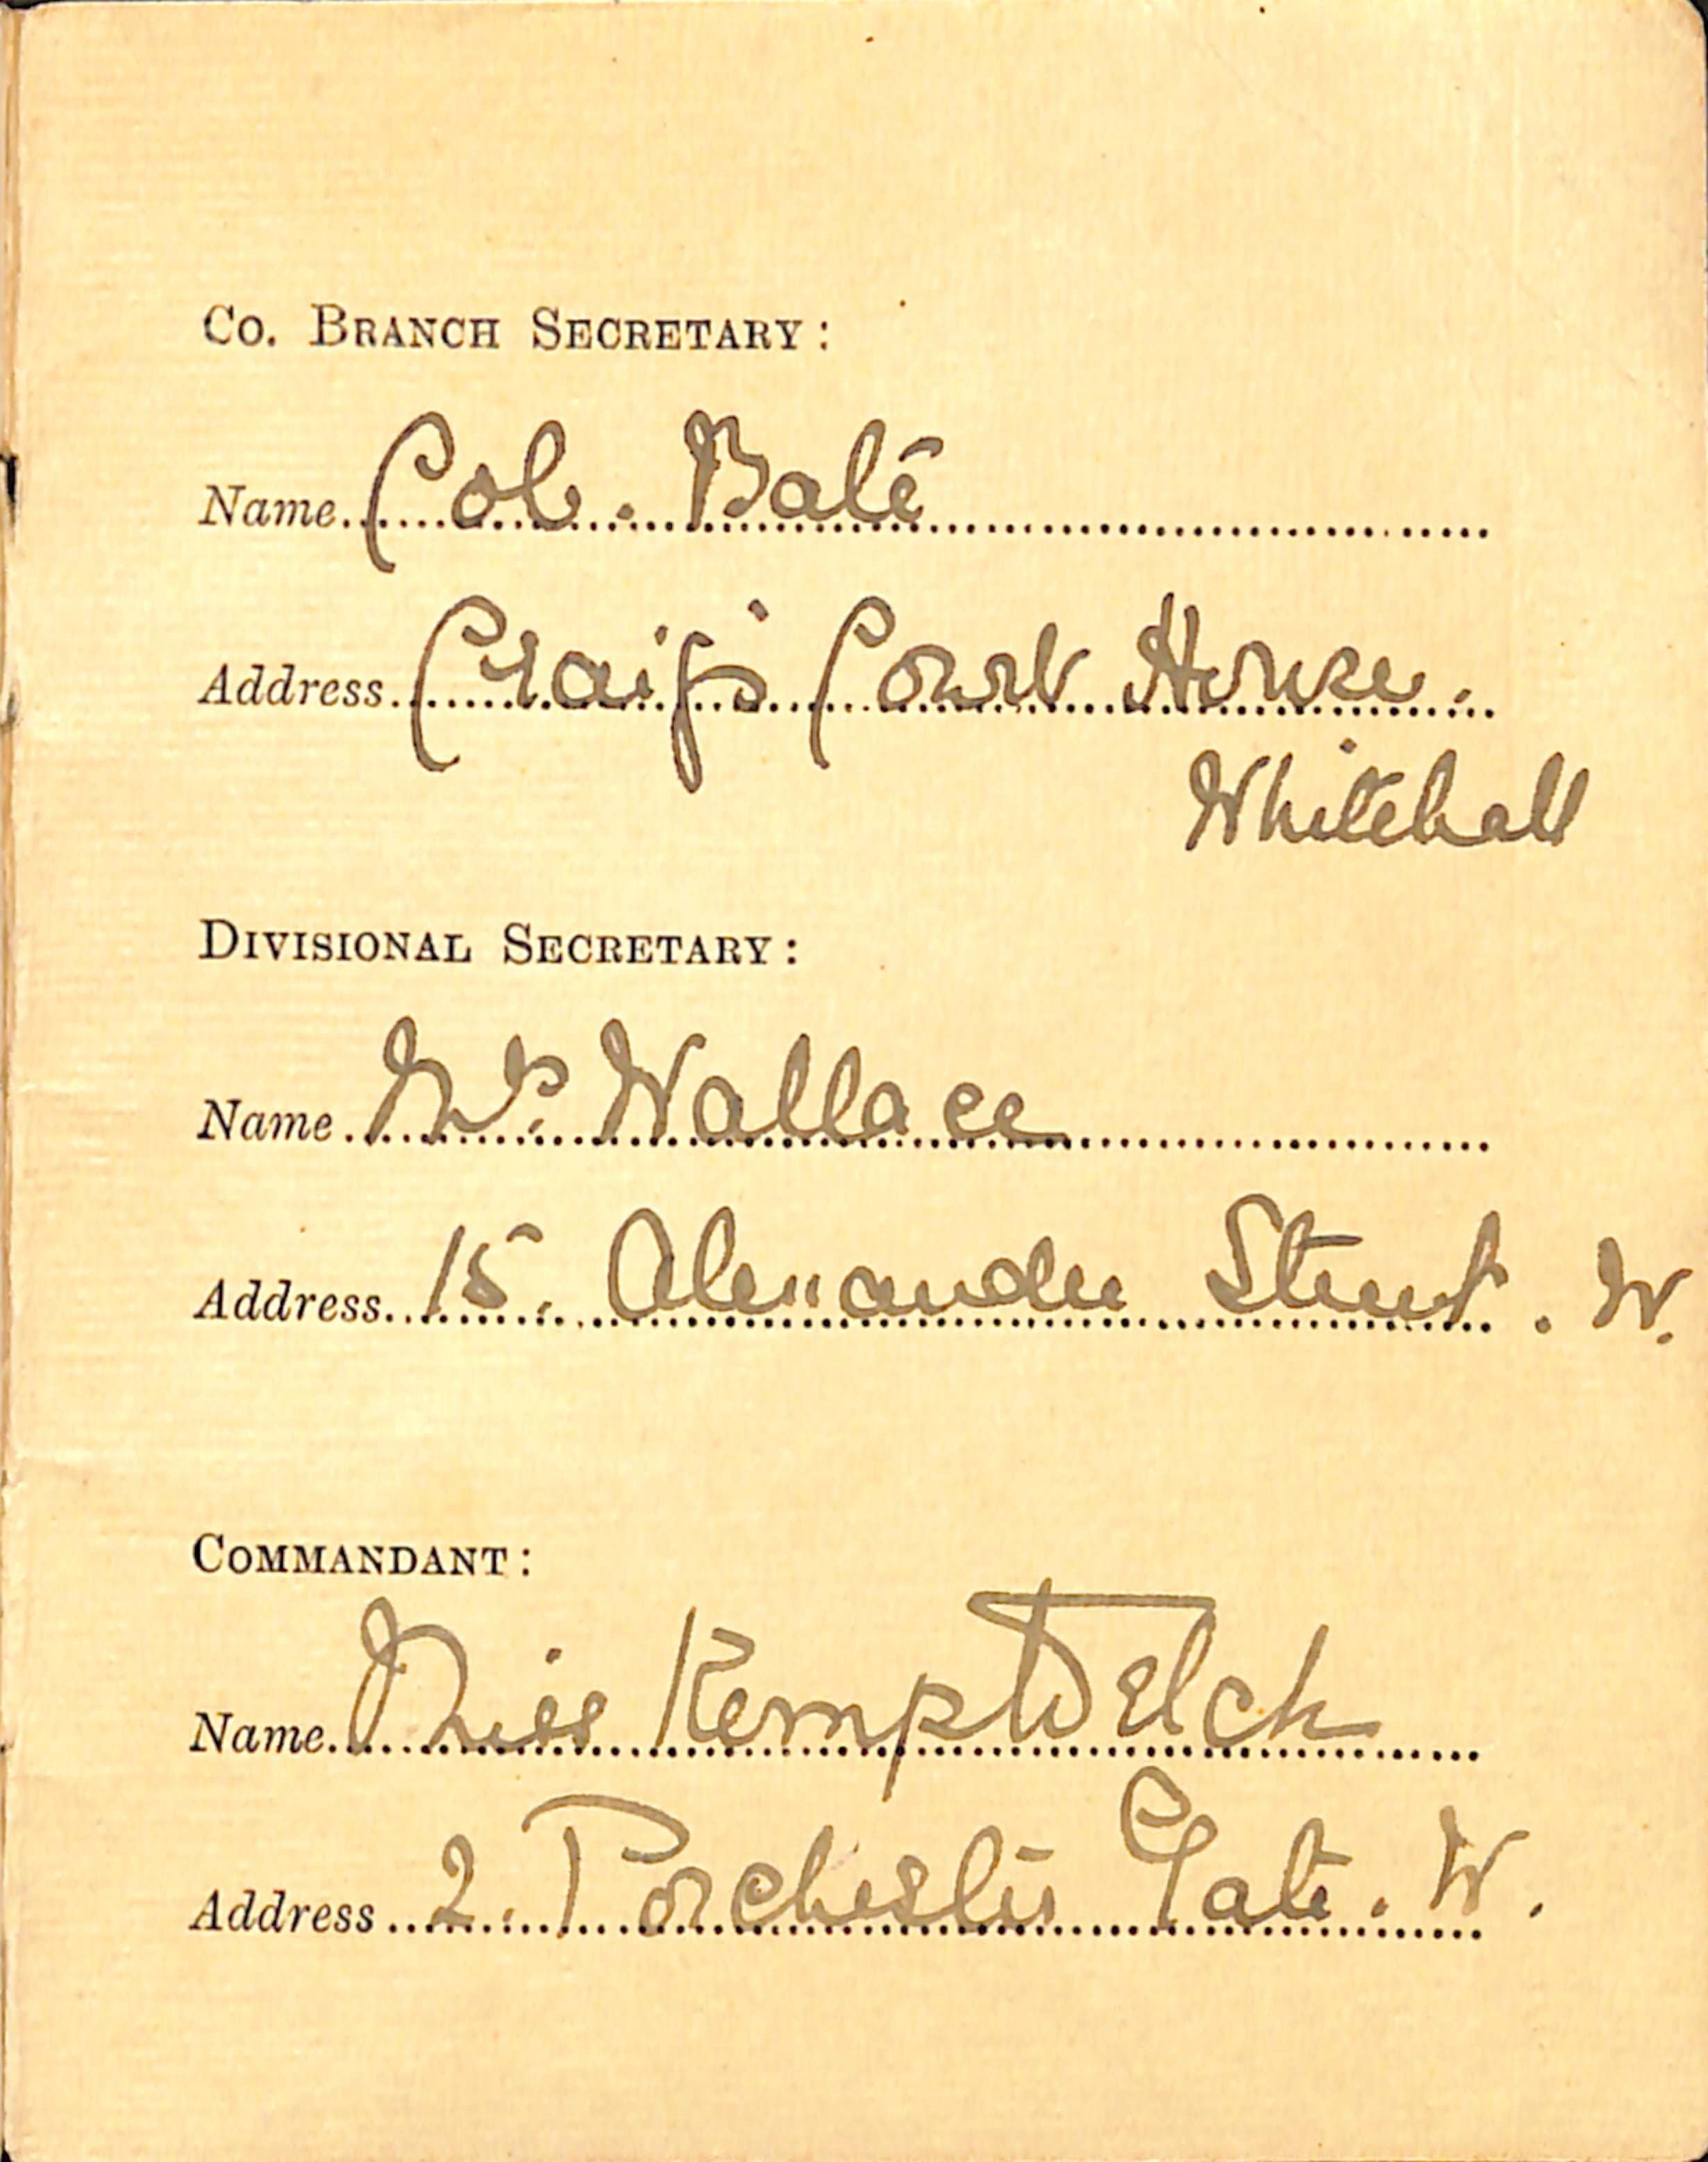 Co. Branch Secretary:
Name Col. Bate
Address Craig's Court House.
Whitehall
Divisional Secretary:
Name Mrs. Wallace
Address 15. Alexander Street. W.
Commandant:
Name Miss Kemp Welch
Address 2. Porchester Gate. W.